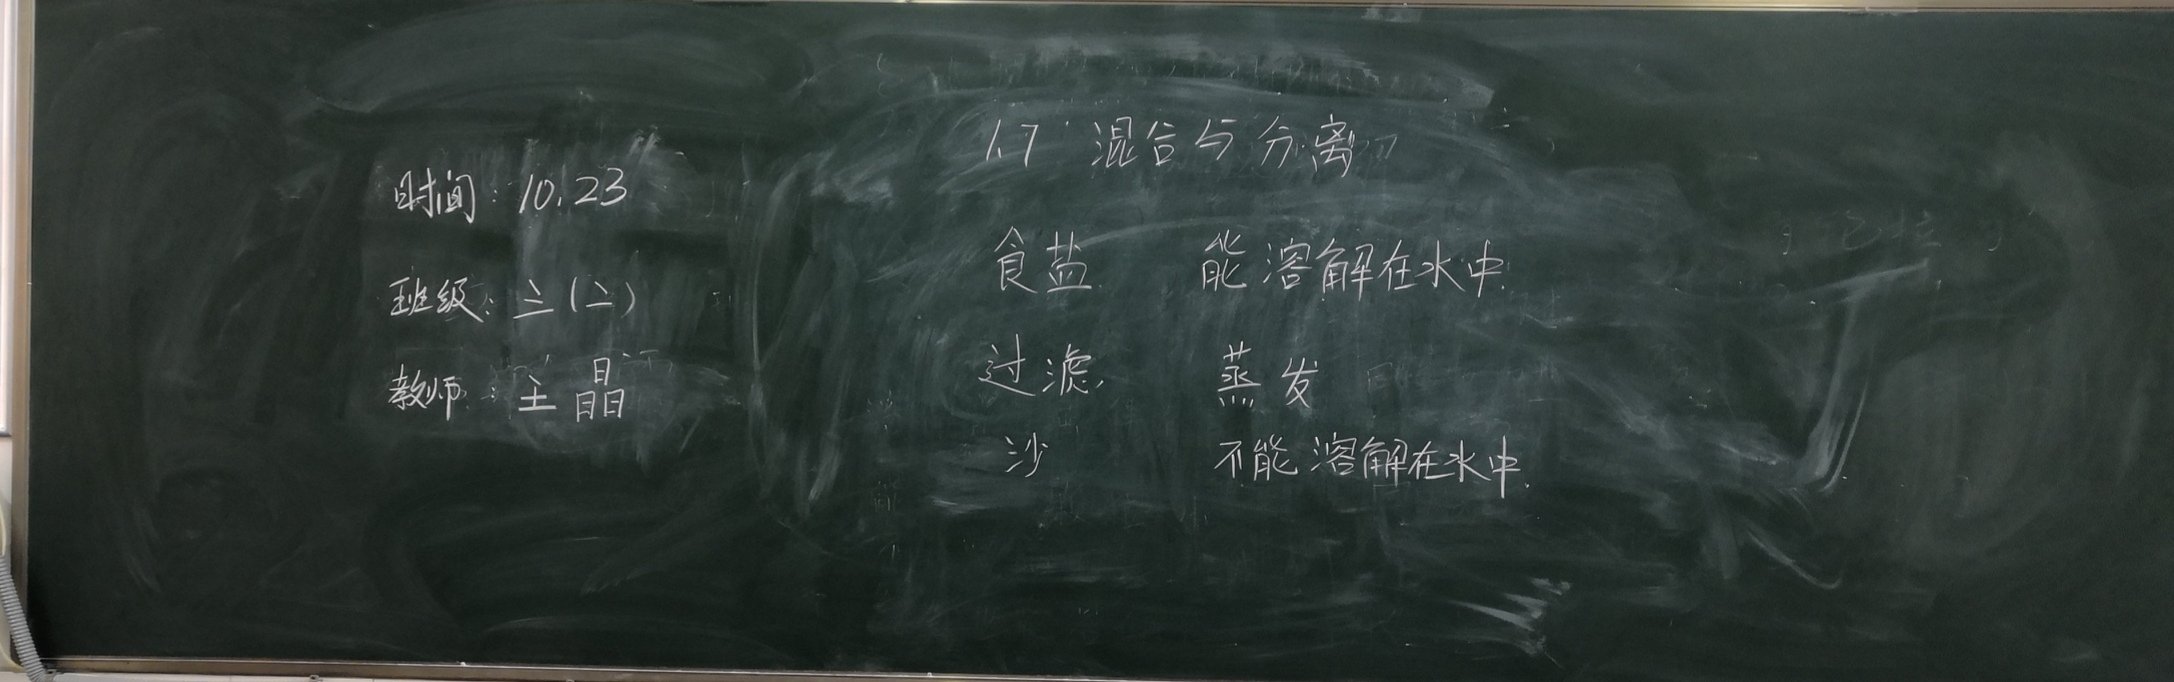 时间：10.23
班级：三（二）
教师：王晶
1.7 混合与分离
食盐 能溶解在水中
过滤 蒸发
沙 不能溶解在水中.